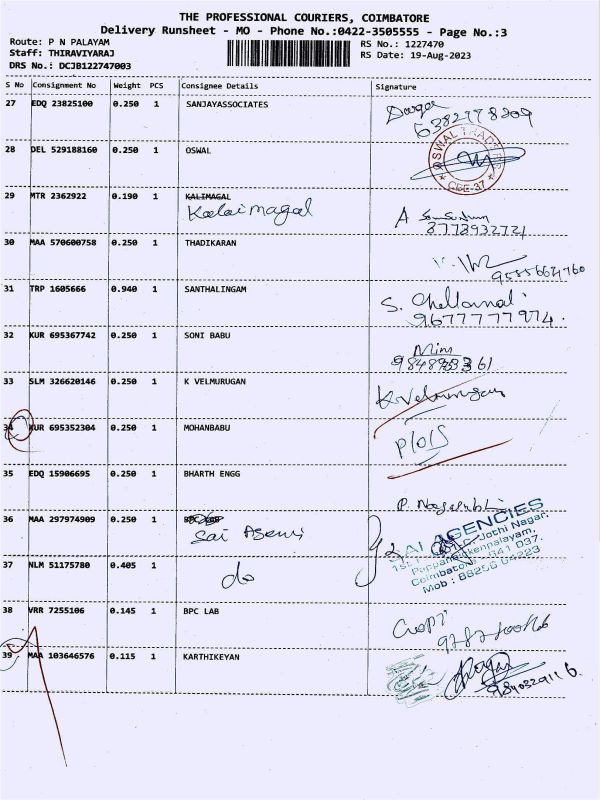 THE PROFESSIONAL COURIERS, COIMBATORE
Delivery Runsheet - MO - Phone No.:0422-3505555 - Page No.:3
Route: P N PALAYAM
RS No.: 1227470
Staff: THIRAVIYARAJ
RS Date: 19-Aug-2023
DRS No.: DCJB122747003
S No Consignment No Weight PCS Consignee Details Signature
27 EDQ 23825100 0.250 1 SANJAYASSOCIATES
28 DEL 529188160 0.250 1 OSWAL
OSWAL TRADERS
CBE-37
29 MTR 2362922 0.190 1 KALIMAGAL
Kalaimagal
8778932721
30 MAA 570600758 0.250 1 THADIKARAN
31 TRP 1605666 0.940 1 SANTHALINGAM
S. Chellammal
9677777974.
32 KUR 695367742 0.250 1 SONI BABU
33 SLM 326620146 0.250 1 K VELMURUGAN
K. Velmurugan
34 KUR 695352304 0.250 1 MOHANBABU
35 EDQ 15906695 0.250 1 BHARTH ENGG
36 MAA 297974909 0.250 1
Sai
SAI AGENCIES
Jothi Nagar,
Pappanaickenpalayam,
Coimbatore - 641 037.
Mob : 88256 04223
37 NLM 51175780 0.405 1 do
38 VRR 7255106 0.145 1 BPC LAB
39 MAA 103646576 0.115 1 KARTHIKEYAN